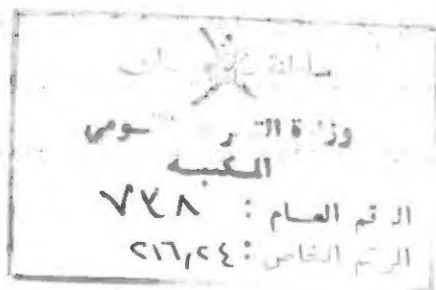 سلطنة عمان
وزارة التراث القومي
المكتبه
الرقم العام : ٧٣٨
الرقم الخاص : ٢١٦,٢٤